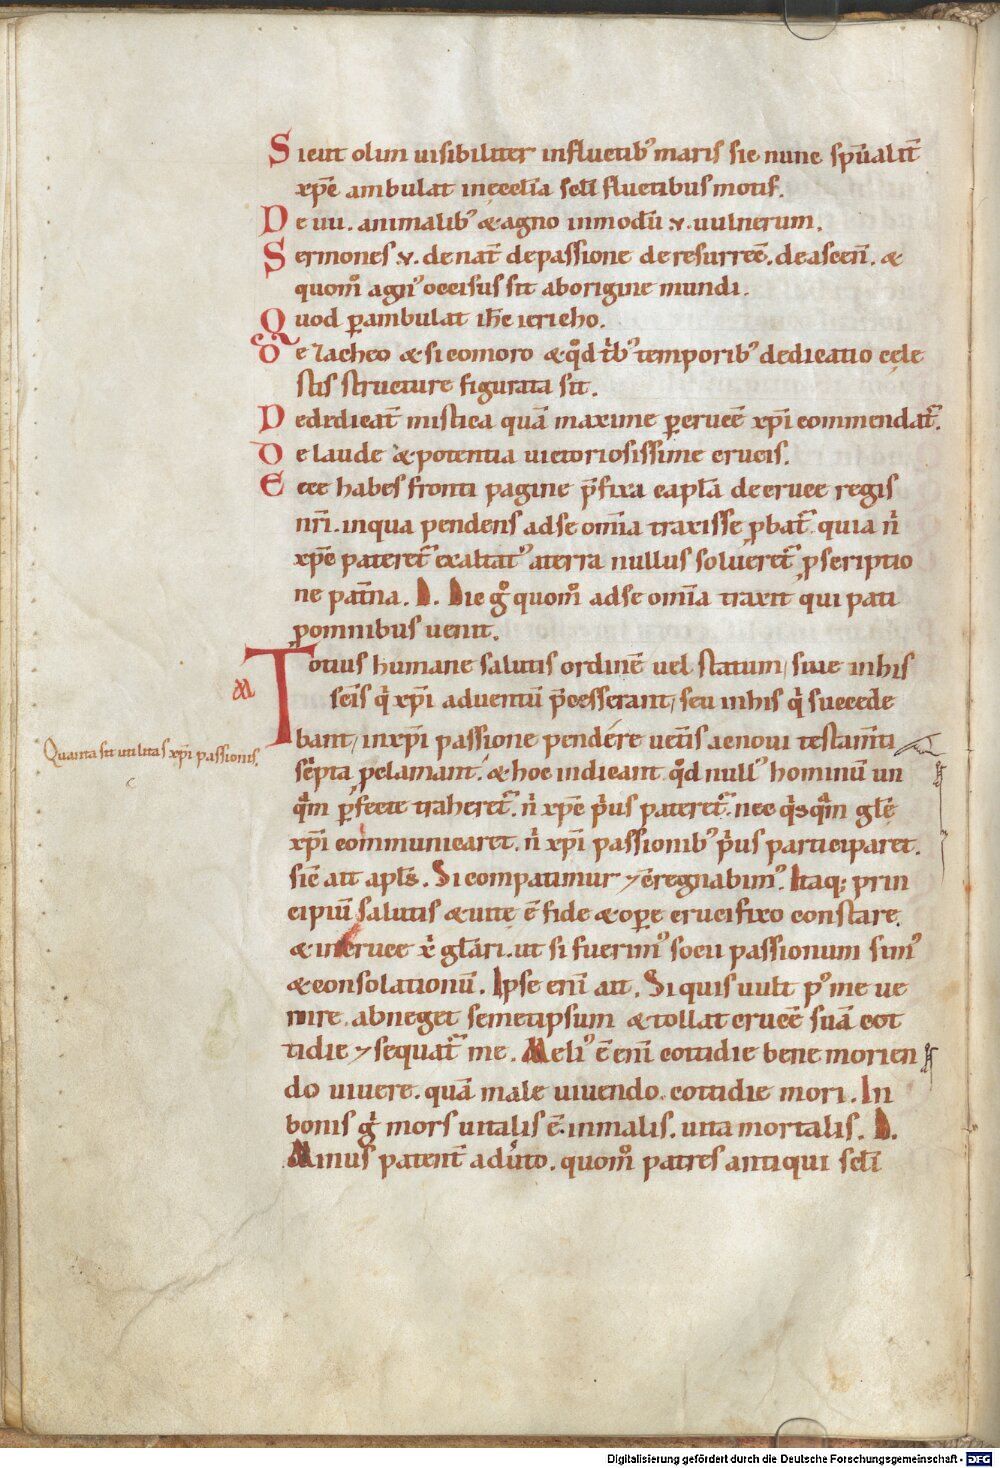 Sicut olim uisibiliter influctib᾽ maris sic nunc sp̄ualit̄
xp̄c ambulat inęcclīa sclī fluctibus motis.
De uii. animalib᾽ & agno inmodū .v. uulnerum.
Sermones .v. de nat̄ de passione de resurrec̄. de ascen̄. &
quom̊ agn᾽ occisus sit aborigine mundi.
Quod ꝑambulat ih̄c iericho.
De zacheo & sicomoro & qd̊ trib᾽ temporib᾽ dedicatio cęle
stis structure figurata sit.
De dedicat̄ mistica quā maxime ꝑ crucē xp̄i commendat᷑.
De laude & potentia uictoriosissime crucis.
Ecce habes fronti pagine p̄fixa capl̄a de cruce regis
nr̄i. inqua pendens adse om̄ia traxisse ꝓbat᷑. quia n̄
xp̄c pateret᷑ exaltat᾽ aterra nullus solueret᷑ ꝓscriptio
ne pat̄na. D. Dic g̊ quom̊ adse om̄ia traxit qui pati
ꝓomnibus uenit.
Totius humane salutis ordinē uel statum, siue inhis
M
scīs q̇ xp̄i aduentū p̄cesserant, seu inhis q̇ succede
bant, inxp̄i passione pendére uet̄is ac noui testam̄ti
Quanta sit utilitas xp̄i passionis.
sc̄pta ꝓclamant. & hoc indicant qd̊ null᾽ hominū un
qm̄ ꝑfecte traheret᷑. n̄ xp̄c p̓us pateret᷑. nec q̇sqm̄ glę̄
xp̄i communicaret. n̄ xp̄i passionib᾽ p̓us participaret.
sic̄ ait apl̄s. Si compatimur ⁊ c̄regnabim᾽. Itaq; prin
cipiū salutis & uitę ē fide & oꝑe crucifixo constare.
& incruce x̄ gl̄ari. ut si fuerim᾽ socii passionum sim᾽
& consolationū. Ipse eni̅ ait. Si quis uult p᾽ me ue
nire. abneget semetipsum & tollat crucē suā cot
tidie ⁊ sequat᷑ me. Meli᾽ ē eni̅ cottidie bene morien
do uiuere. quā male uiuendo. cottidie mori. In
bonis g̊ mors uitalis ē. inmalis. uita mortalis. D.
Minus patent̄ aduto. quom̊ patres antiqui sclī
Digitalisierung gefördert durch die Deutsche Forschungsgemeinschaft - DFG